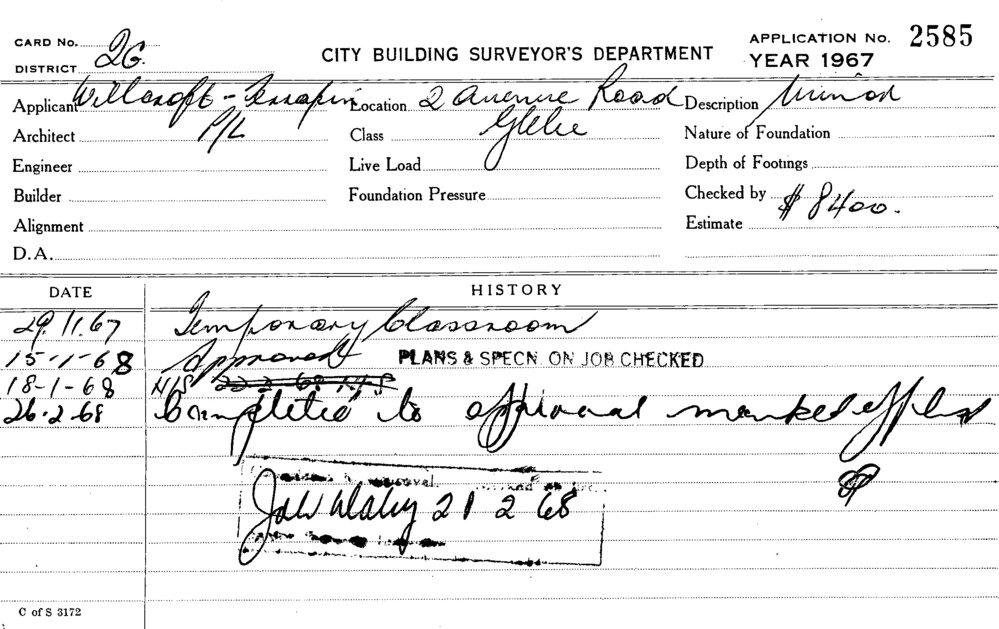 CARD No. 2G.
DISTRICT
CITY BUILDING SURVEYOR'S DEPARTMENT
APPLICATION No. 2585
YEAR 1967
Applicant Willcroft - Terrapin P/L
Location 2 Avenue Road Glebe
Description Minor
Architect
Class
Nature of Foundation
Engineer
Live Load
Depth of Footings
Builder
Foundation Pressure
Checked by
Alignment
Estimate $8400.
D.A.
DATE HISTORY
29.11.67 Temporary Classroom
15-1-68 Approved PLANS & SPECN. ON JOB CHECKED
18-1-68 N/S 22 2 68 N/S
26.2.68 Completed to approval marked off
21 2 68
C of S 3172